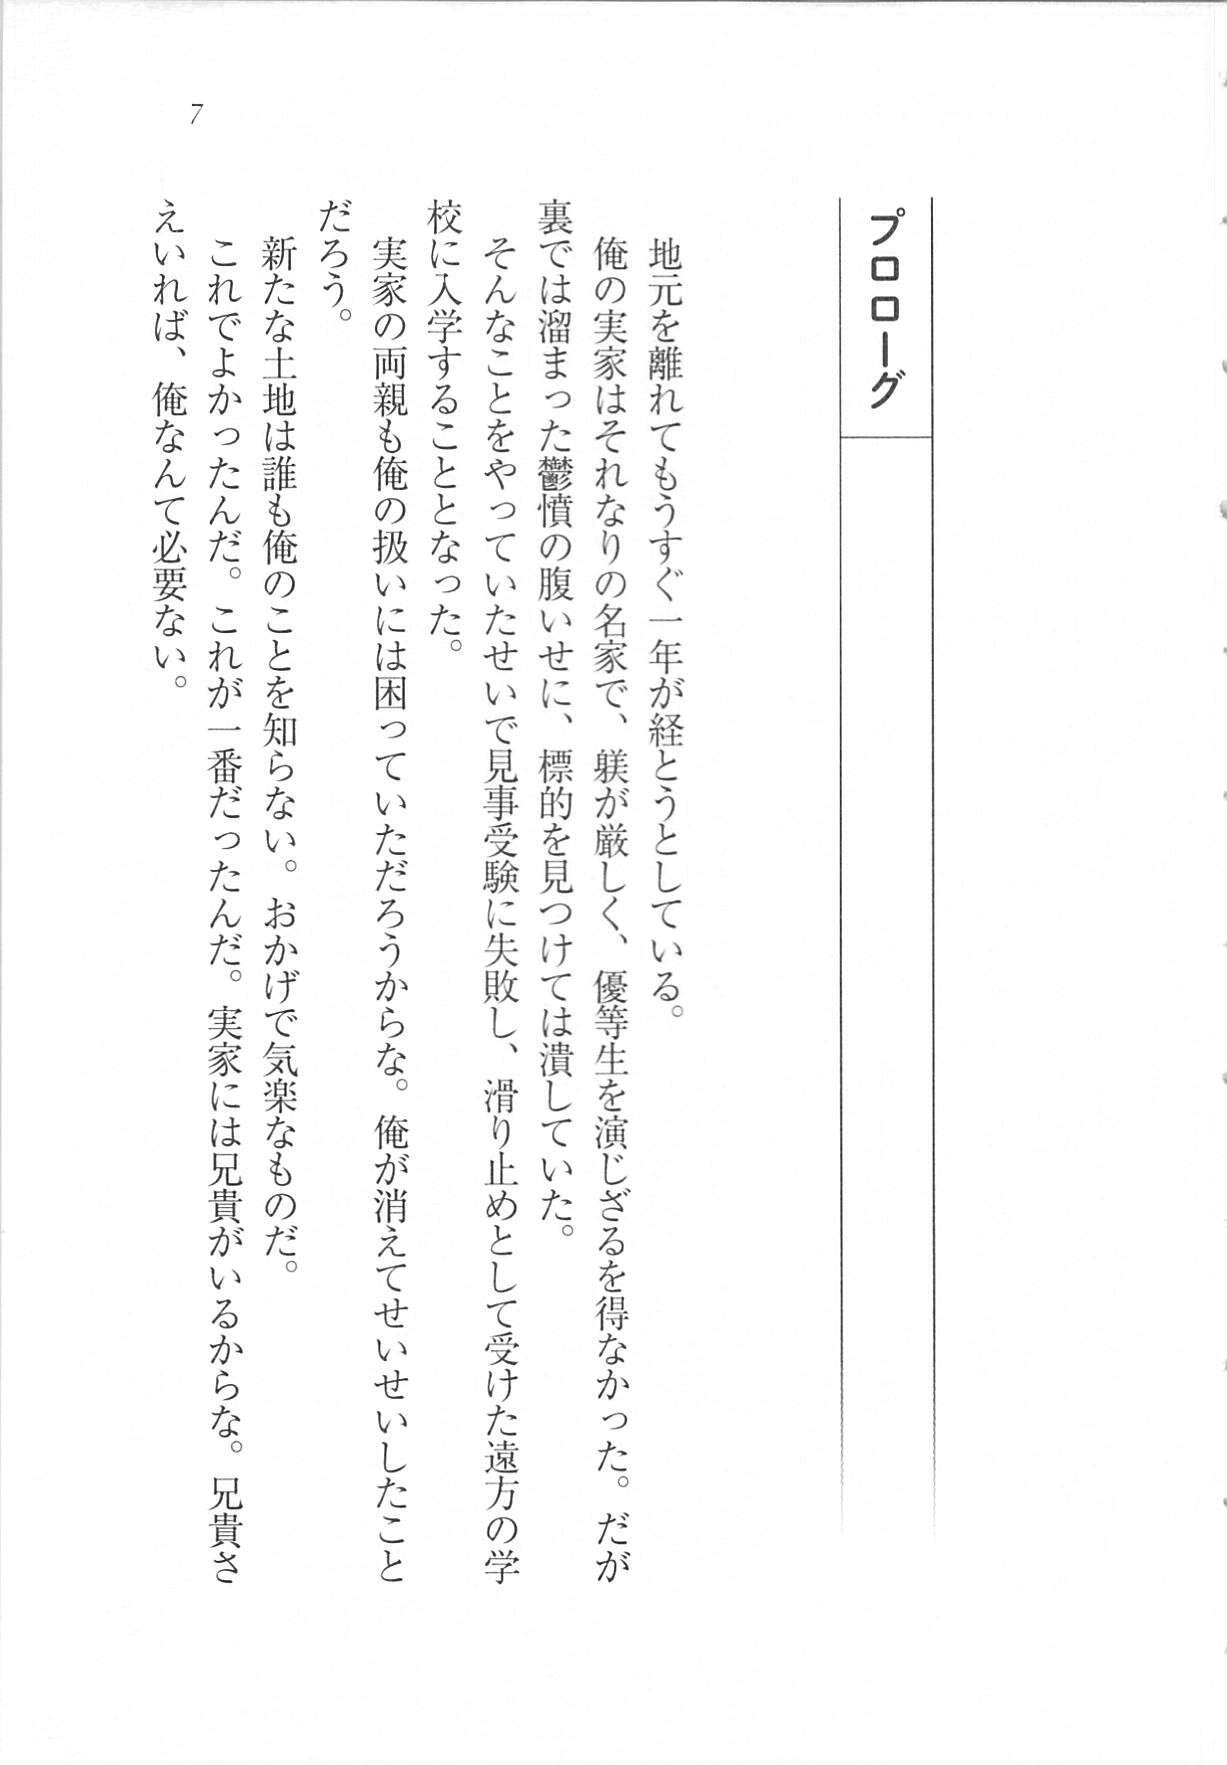 プロローグ
地元を離れてもうすぐ一年が経とうとしている。
俺の実家はそれなりの名家で、躾が厳しく、優等生を演じざるを得なかった。だが
裏では溜まった鬱憤の腹いせに、標的を見つけては潰していた。
そんなことをやっていたせいで見事受験に失敗し、滑り止めとして受けた遠方の学
校に入学することとなった。
実家の両親も俺の扱いには困っていただろうからな。俺が消えてせいせいしたこと
だろう。
新たな土地は誰も俺のことを知らない。おかげで気楽なものだ。
これでよかったんだ。これが一番だったんだ。実家には兄貴がいるからな。兄貴さ
えいれば、俺なんて必要ない。
7